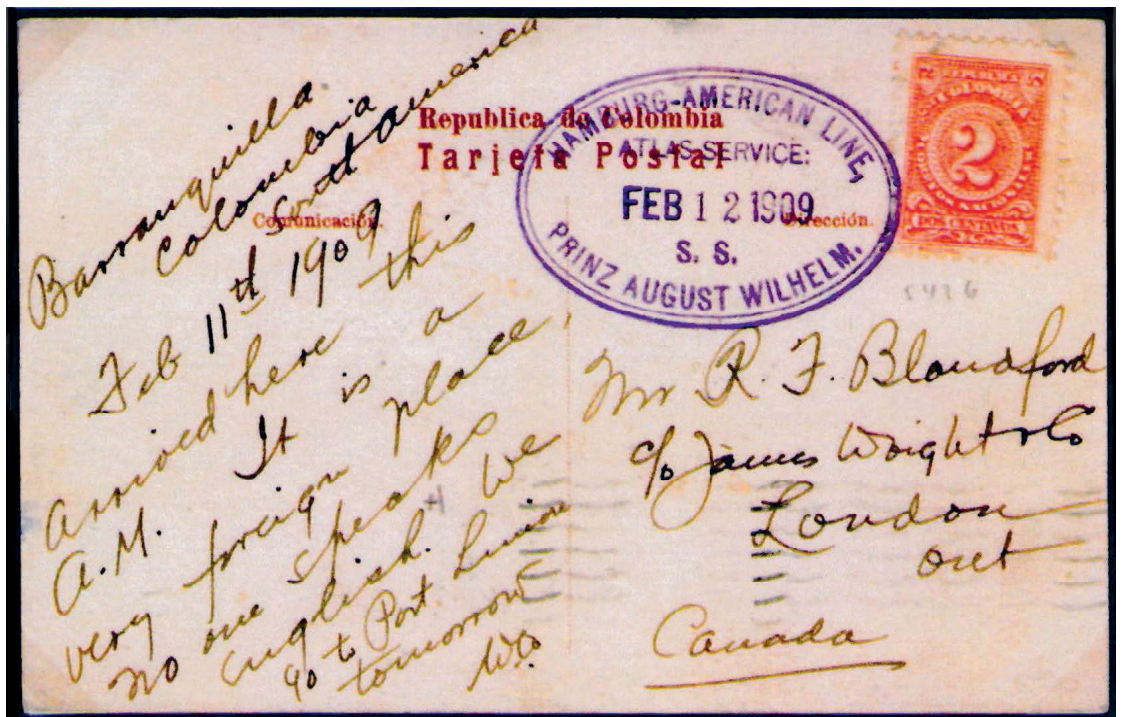 Barranquilla
Colombia
South America
Feb 11th 1909
Arrived here this
A.M. It is a
very foreign place,
No one speaks
english. We
go to Port Limon
tomorrow
Republica de Colombia
Tarjeta Postal
Comunicación.
Dirección.
HAMBURG-AMERICAN LINE,
ATLAS SERVICE:
FEB 12 1909
S. S.
PRINZ AUGUST WILHELM.
REPUBLICA
DE COLOMBIA
2
DOS CENTAVOS
5426
Mr R. F. Blandford
c/o James Wright & Co
London
Ont
Canada